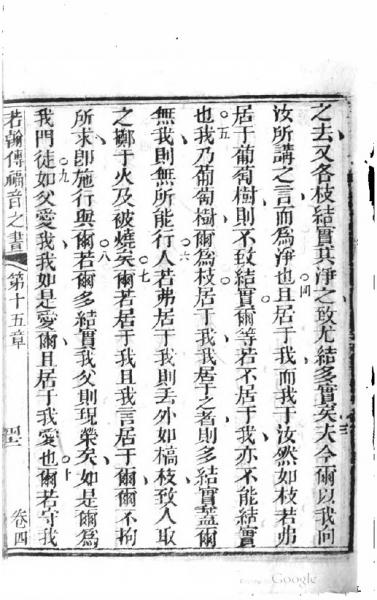 之去又各枝結實其淨之致尤結多實矣三夫今爾以我向
汝所講之言而為淨也四且居于我而我于汝然如枝若弗
居于葡萄樹則不致結實爾等若不居于我亦不能結實
也五我乃葡萄樹爾為枝居于我我居于之者則多結實蓋爾
無我則無所能行六人若弗居于我則丟外如槁枝致人取
之擲于火及被燒矣七爾若居于我且我言居于爾爾不拘
所求即施行與爾八若爾多結實我父則現榮矣如是爾為
我門徒九如父愛我我如是愛爾且居于我愛也十爾若守我
若翰傳福音之書 第十五章 卷四
Google